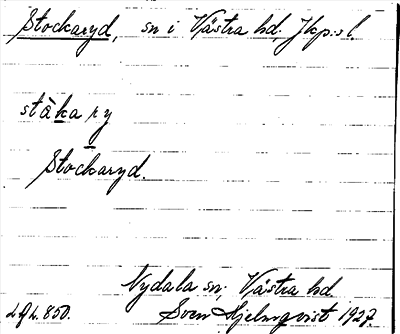 Stockaryd, sn i Västra hd, Jkp:s l.
stå̀ka ry
Stockaryd.
Nydala sn, Västra hd
L.f.L. 850. Sven Hjelmqvist 1927.